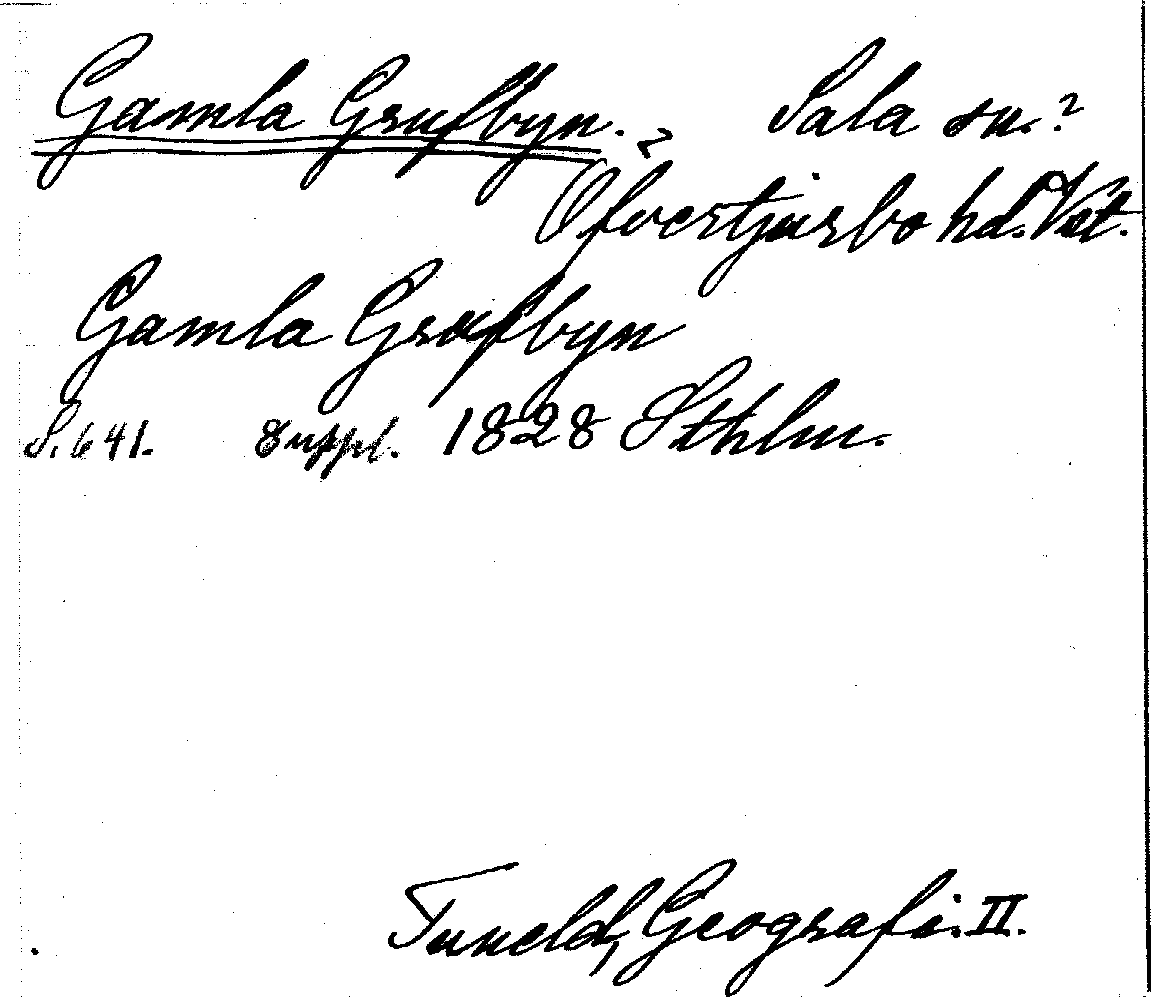 Gamla Grufbyn. ? Sala sn.?
Öfvertjurbo hd. Vst.
Gamla Grufbyn
S. 641. Suppl. 1828 Sthlm.
Tuneld, Geografi. II.